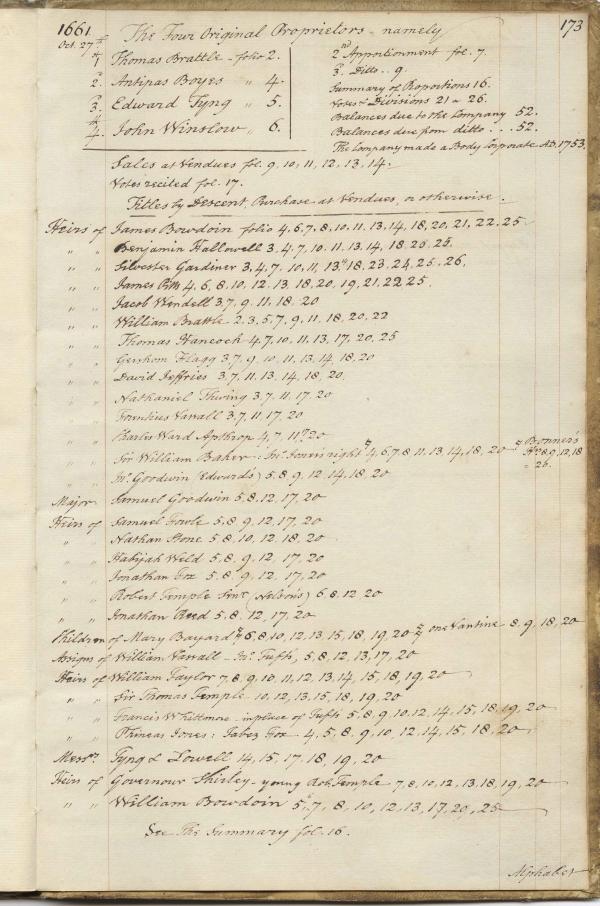 1661. The Four Original Proprietors - namely 173
Oct. 27th
1st Thomas Brattle - folio 2.
2d. Antipas Boyes " 4.
3d. Edward Tyng " 5.
4th John Winslow " 6.
2nd Apportionment fol. 7.
3d. Ditto .. 9.
Summary of Proportions 16.
Votes & Divisions 21 a 26.
Balances due to the Company 52.
Balances due from ditto . . . 52.
The Company made a Body Corporate A.D. 1753.
Sales at Vendues fol. 9, 10, 11, 12, 13, 14.
Votes recited fol. 17.
Titles by Descent, Purchase at Vendues, or otherwise.
Heirs of James Bowdoin folio 4, 6, 7, 8, 10, 11, 13, 14, 18, 20, 21, 22, 25.
" " Benjamin Hallowell 3, 4, 7, 10, 11, 13, 14, 18, 20, 25.
" " Silvester Gardiner 3, 4, 7, 10, 11, 13, 18, 23, 24, 25, 26.
" " James Pitts 4, 6, 8, 10, 12, 13, 18, 20, 19, 21, 22, 25.
" " Jacob Wendell 3, 7, 9, 11, 18, 20
" " William Brattle 2, 3, 5, 7, 9, 11, 18, 20, 22
" " Thomas Hancock 4, 7, 10, 11, 13, 17, 20, 25
" " Gershom Flagg 3, 7, 9, 10, 11, 13, 14, 18, 20
" " David Jeffries 3, 7, 11, 13, 14, 18, 20.
" " Nathaniel Thwing 3, 7, 11, 17, 20
" " Florentius Vassall 3, 7, 11, 17, 20
" " Charles Ward Apthrop 4, 7, 11, 20
" " Sir William Baker: Jno. Jones's right 4, 6, 7, 8, 11, 13, 14, 18, 20 Bonner's
8, 9, 12, 18
" 26.
" " Jno. Goodwin (Edward's) 5, 8, 9, 12, 14, 18, 20
Major Samuel Goodwin 5, 8, 12, 17, 20
Heirs of Samuel Fowle 5, 8, 9, 12, 17, 20
" " Nathan Stone 5, 8, 10, 12, 18, 20
" " Habijah Weld 5, 8, 9, 12, 17, 20
" " Jonathan Fox 5, 8, 9, 12, 17, 20
" " Robert Temple Senr. (Nelson's) 6, 8, 12, 20
" " Jonathan Reed 5, 8, 12, 17, 20
Children of Mary Bayard 6, 8, 10, 12, 13, 15, 18, 19, 20 one Vantine 8, 9, 18, 20
Assigns of William Vassall - Jno. Tufts, 5, 8, 12, 13, 17, 20
Heirs of William Taylor 7, 8, 9, 10, 11, 12, 13, 14, 15, 18, 19, 20
" " Sir Thomas Temple 10, 12, 13, 15, 18, 19, 20
" " Francis Whittmore in place of Tufts 5, 8, 9, 10, 12, 14, 15, 18, 19, 20
" " Phineas Jones: Jabez Fox 4, 5, 8, 9, 10, 12, 14, 15, 18, 20
Messrs. Tyng & Lowell 14, 15, 17, 18, 19, 20
Heirs of Governour Shirley - young Rob. Temple 7, 8, 10, 12, 13, 18, 19, 20
" " William Bowdoin 5, 7, 8, 10, 12, 13, 17, 20, 25
See The Summary fol. 16.
Alphabet